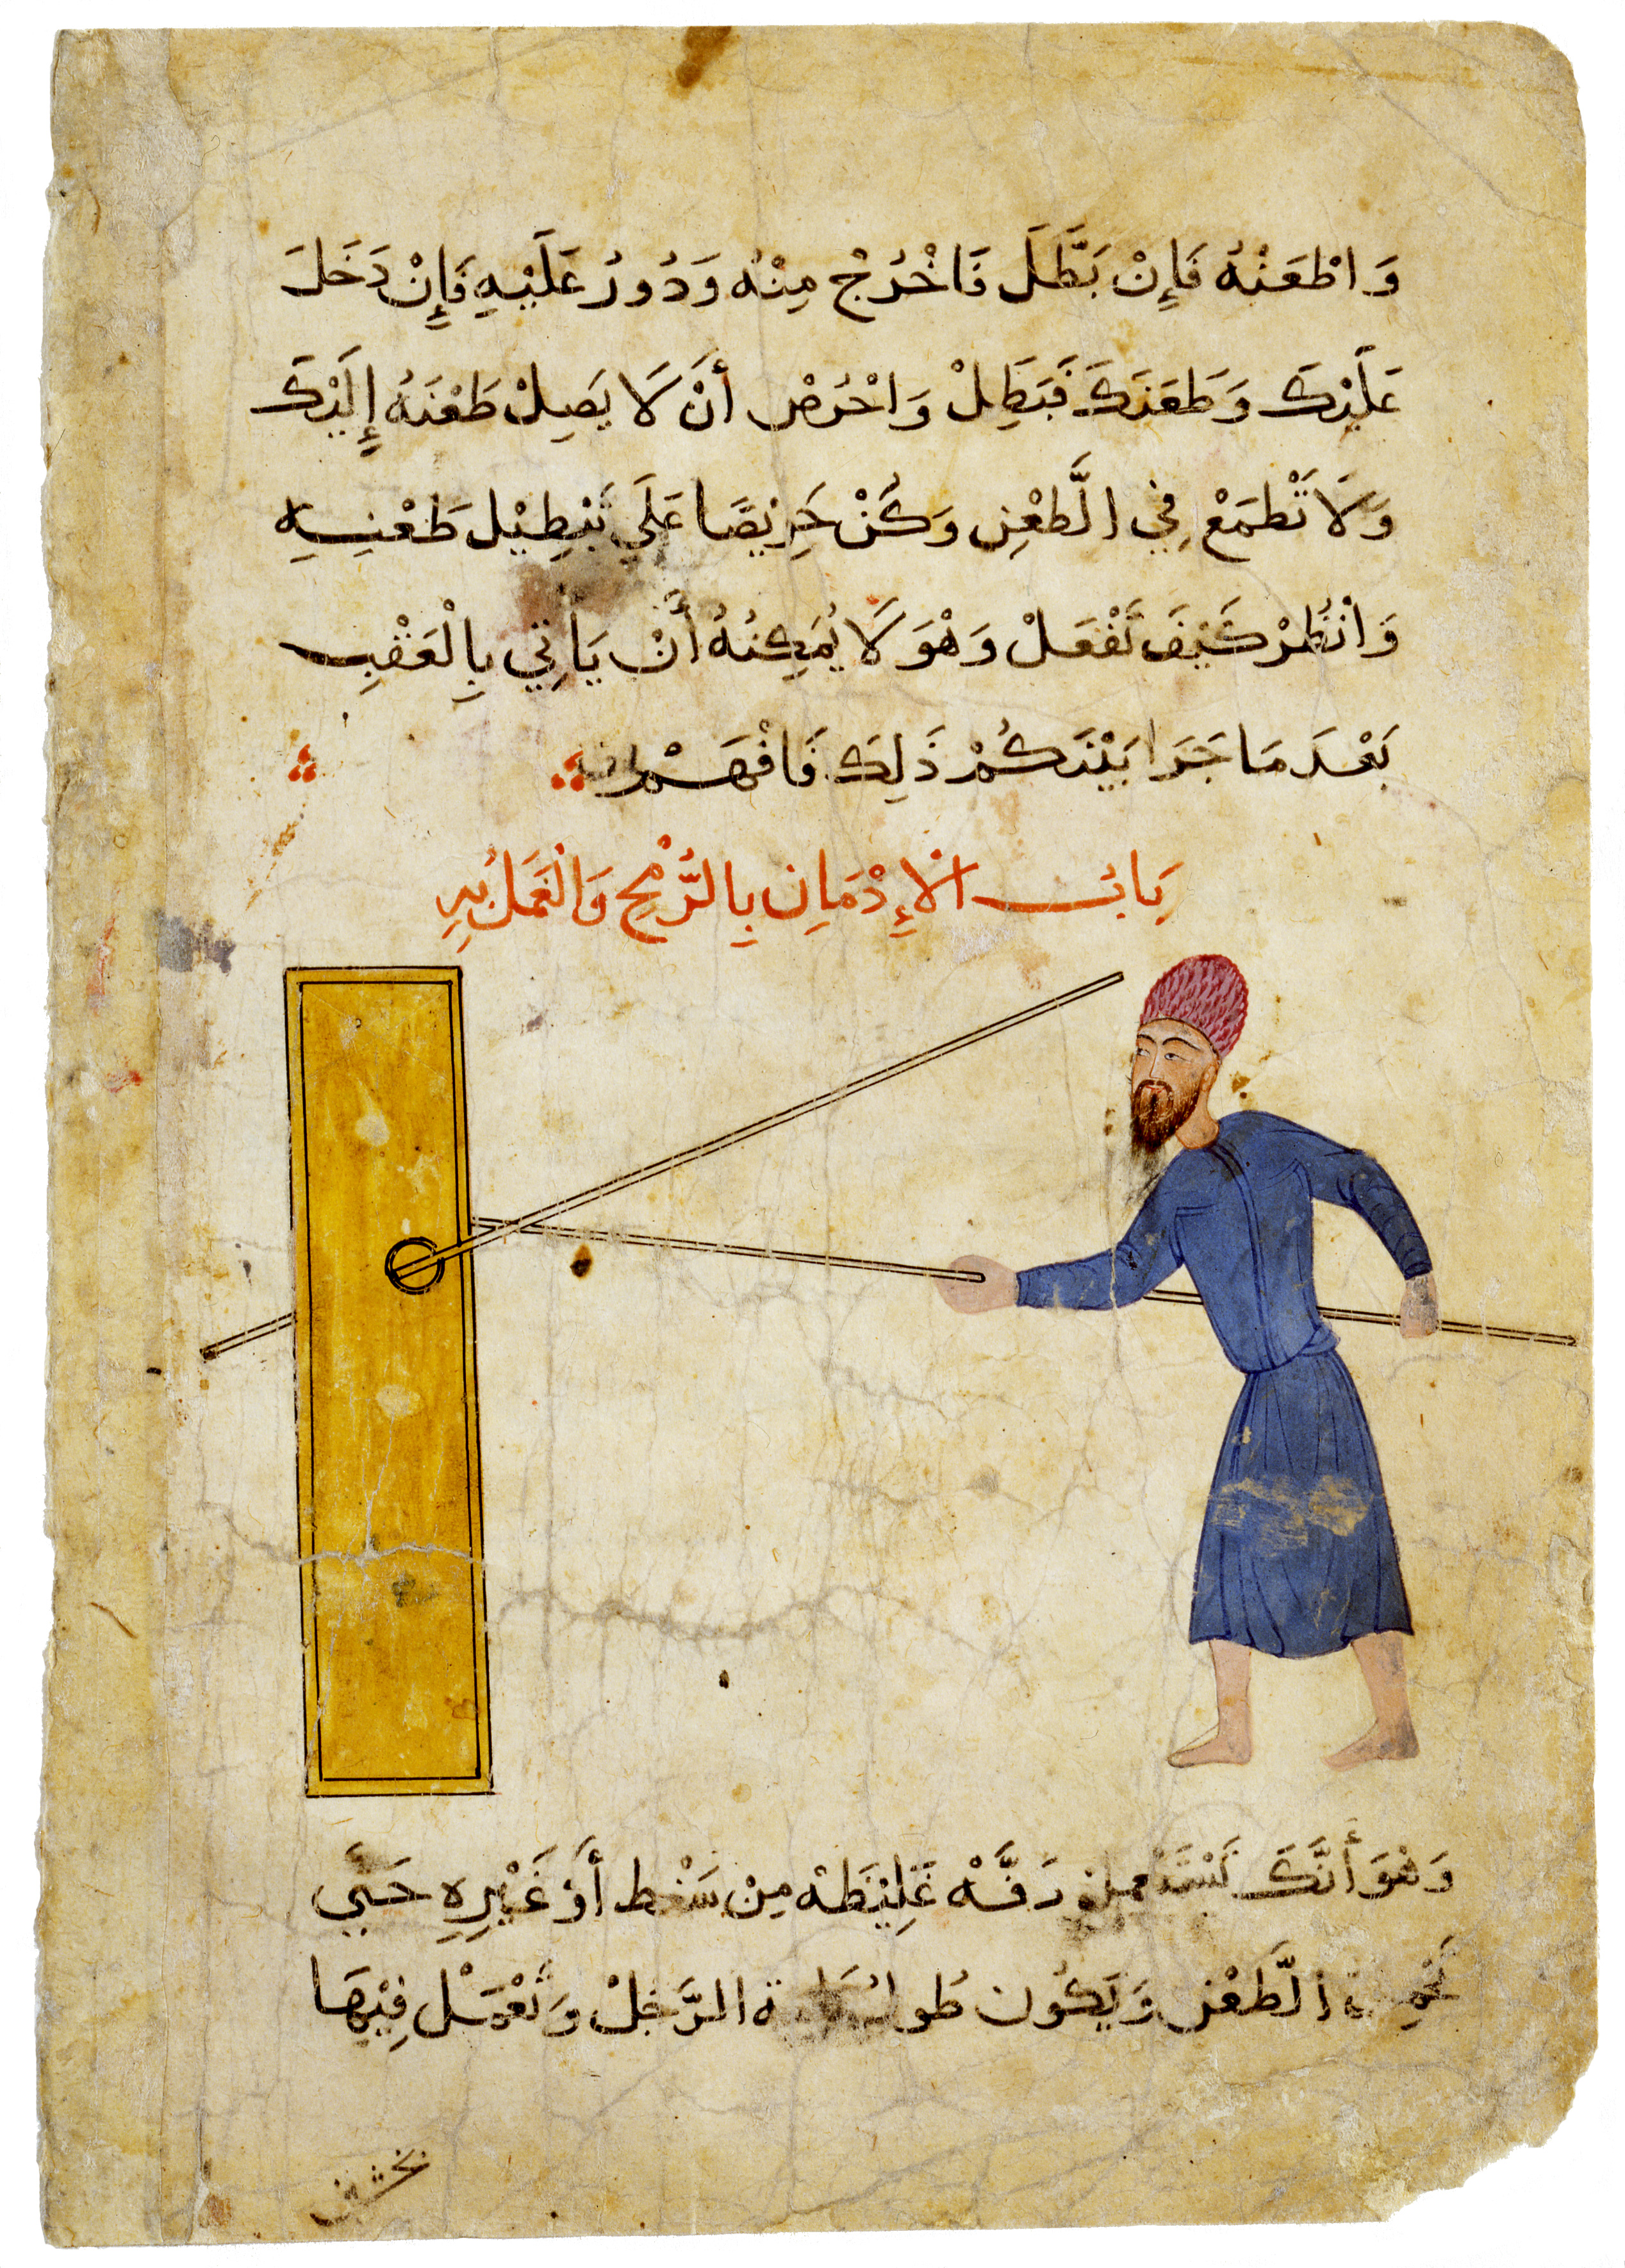 وَاطْعَنْهُ فَإِنْ بَطَّلَ فَاخْرُجْ مِنْهُ وَدُورُ عَلَيْهِ فَإِنْ دَخَلَ
عَلَيْكَ وَطَعَنَكَ فَبَطِلْ وَاحْرُصْ أَنْ لَا يَصِلْ طَعْنَهُ إِلَيْكَ
وَلَا تْطمَعْ فِي الَّطعْنِ وَكُنْ حَرِيْصًا عَلَي تَبْطِيْل طَعْنِهِ
وَانْظُرْ كَيْفَ تَفْعَلْ وَهْوَ لَا يُمَكِنُهُ أَنْ يَأتِي بِالْعَقْبِ
بَعْدَ مَا جَرَا بَيْنَكُمْ ذَلِكَ فَافْهَمْ
بَابُ الْإِدْمَانِ بِالرُّمْحِ وَالْعَمَلُ بِهِ
وَهْوَ أَنَّكَ تَسْتَعمل دَفَّهْ غَلِيْظَهْ مِنْ سَنْط أَوْ غَيْرِهِ حَتَّي
الَّطعْن وَيَكُون طُول الرَّجُلْ وَتَعْمَلْ فِيْهَا